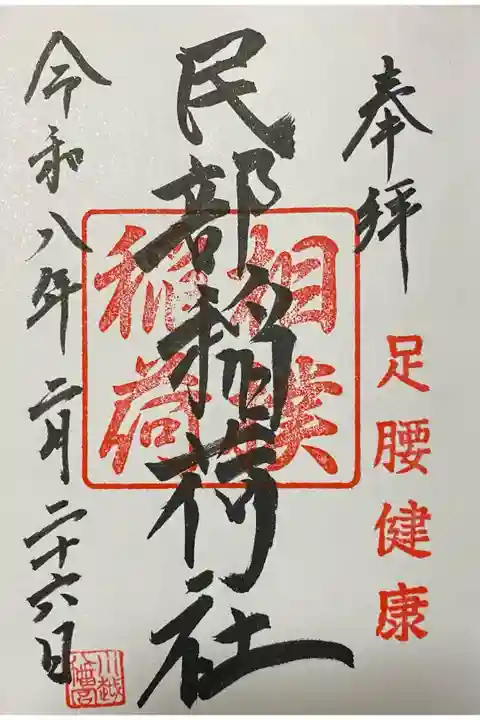 奉拝
足腰健康
民部稲荷社
相撲
稲荷
令和八年二月二十六日
川越
八幡宮